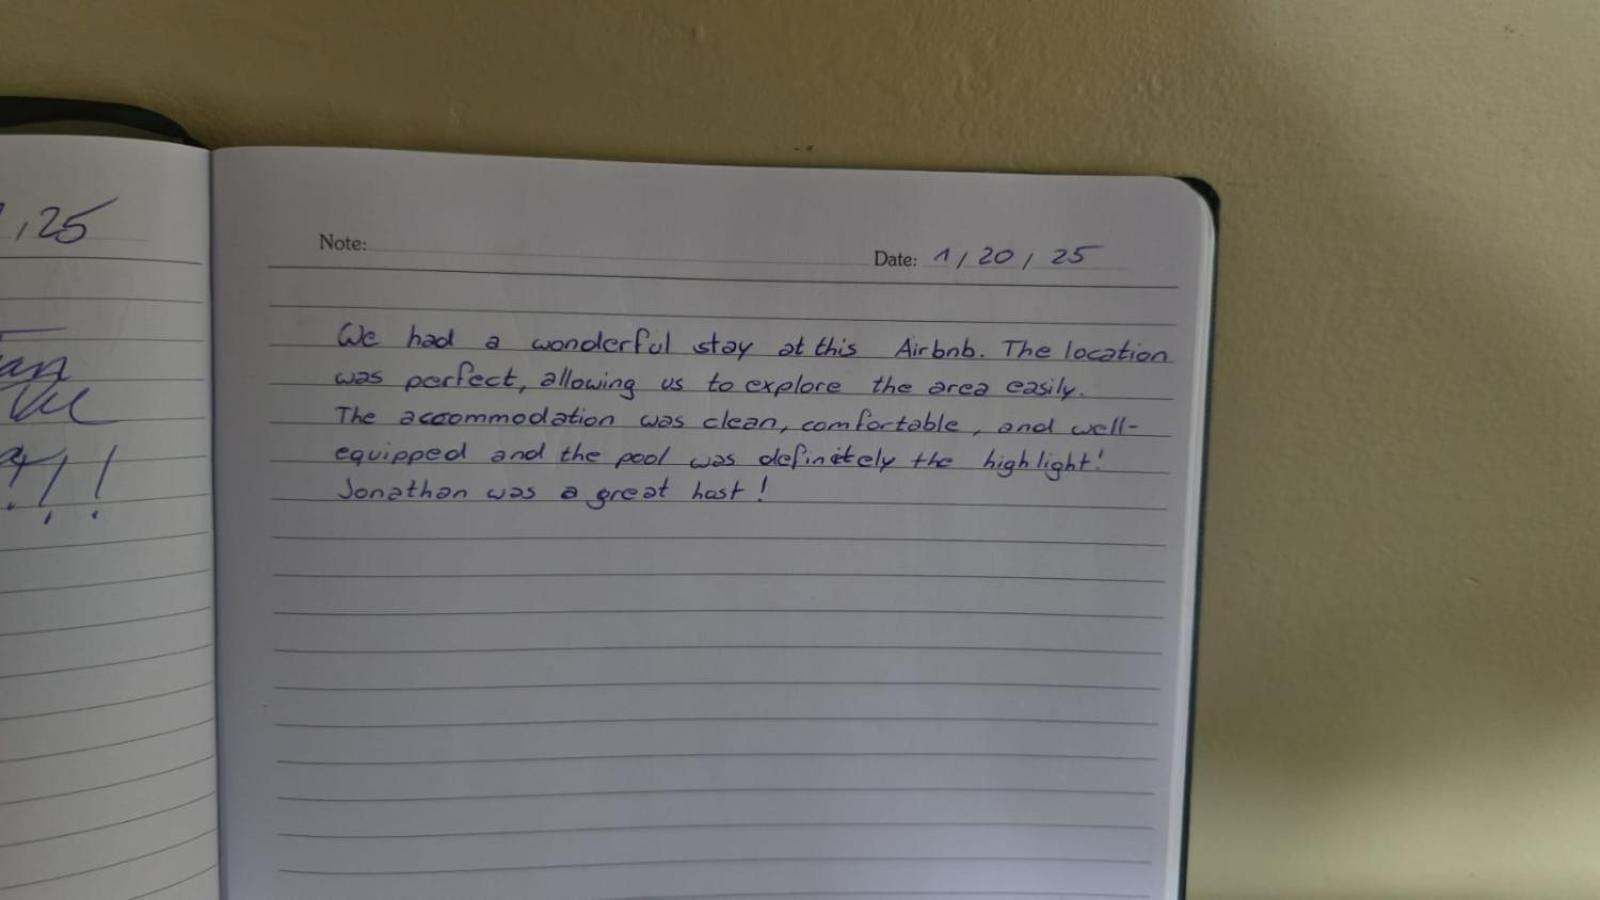 ,25
Note:
Date: 1/20/25
We had a wonderful stay at this Airbnb. The location
was perfect, allowing us to explore the area easily.
The accommodation was clean, comfortable, and well-
equipped and the pool was definitely the highlight!
Jonathan was a great host!